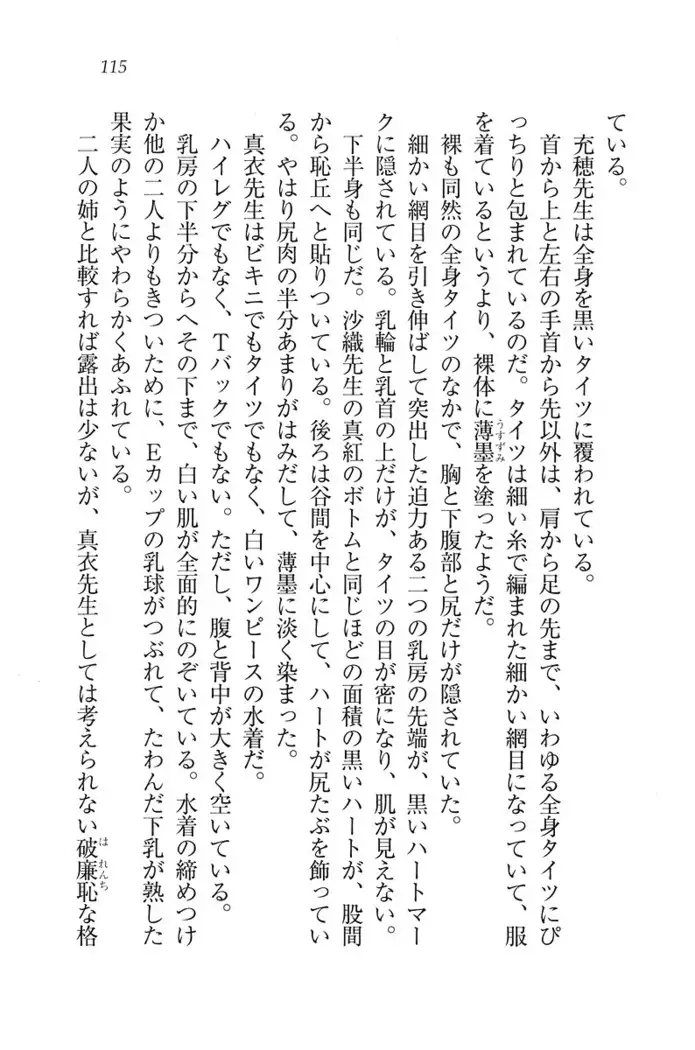 115
ている。
充穂先生は全身を黒いタイツに覆われている。
首から上と左右の手首から先以外は、肩から足の先まで、いわゆる全身タイツにぴ
っちりと包まれているのだ。タイツは細い糸で編まれた細かい網目になっていて、服
を着ているというより、裸体に薄墨を塗ったようだ。
うすずみ
裸も同然の全身タイツのなかで、胸と下腹部と尻だけが隠されていた。
細かい網目を引き伸ばして突出した迫力ある二つの乳房の先端が、黒いハートマー
クに隠されている。乳輪と乳首の上だけが、タイツの目が密になり、肌が見えない。
下半身も同じだ。沙織先生の真紅のボトムと同じほどの面積の黒いハートが、股間
から恥丘へと貼りついている。後ろは谷間を中心にして、ハートが尻たぶを飾ってい
る。やはり尻肉の半分あまりがはみだして、薄墨に淡く染まった。
真衣先生はビキニでもタイツでもなく、白いワンピースの水着だ。
ハイレグでもなく、Tバックでもない。ただし、腹と背中が大きく空いている。
乳房の下半分からへその下まで、白い肌が全面的にのぞいている。水着の締めつけ
か他の二人よりもきついために、Eカップの乳球がつぶれて、たわんだ下乳が熟した
果実のようにやわらかくあふれている。
二人の姉と比較すれば露出は少ないが、真衣先生としては考えられない破廉恥な格
はれんち